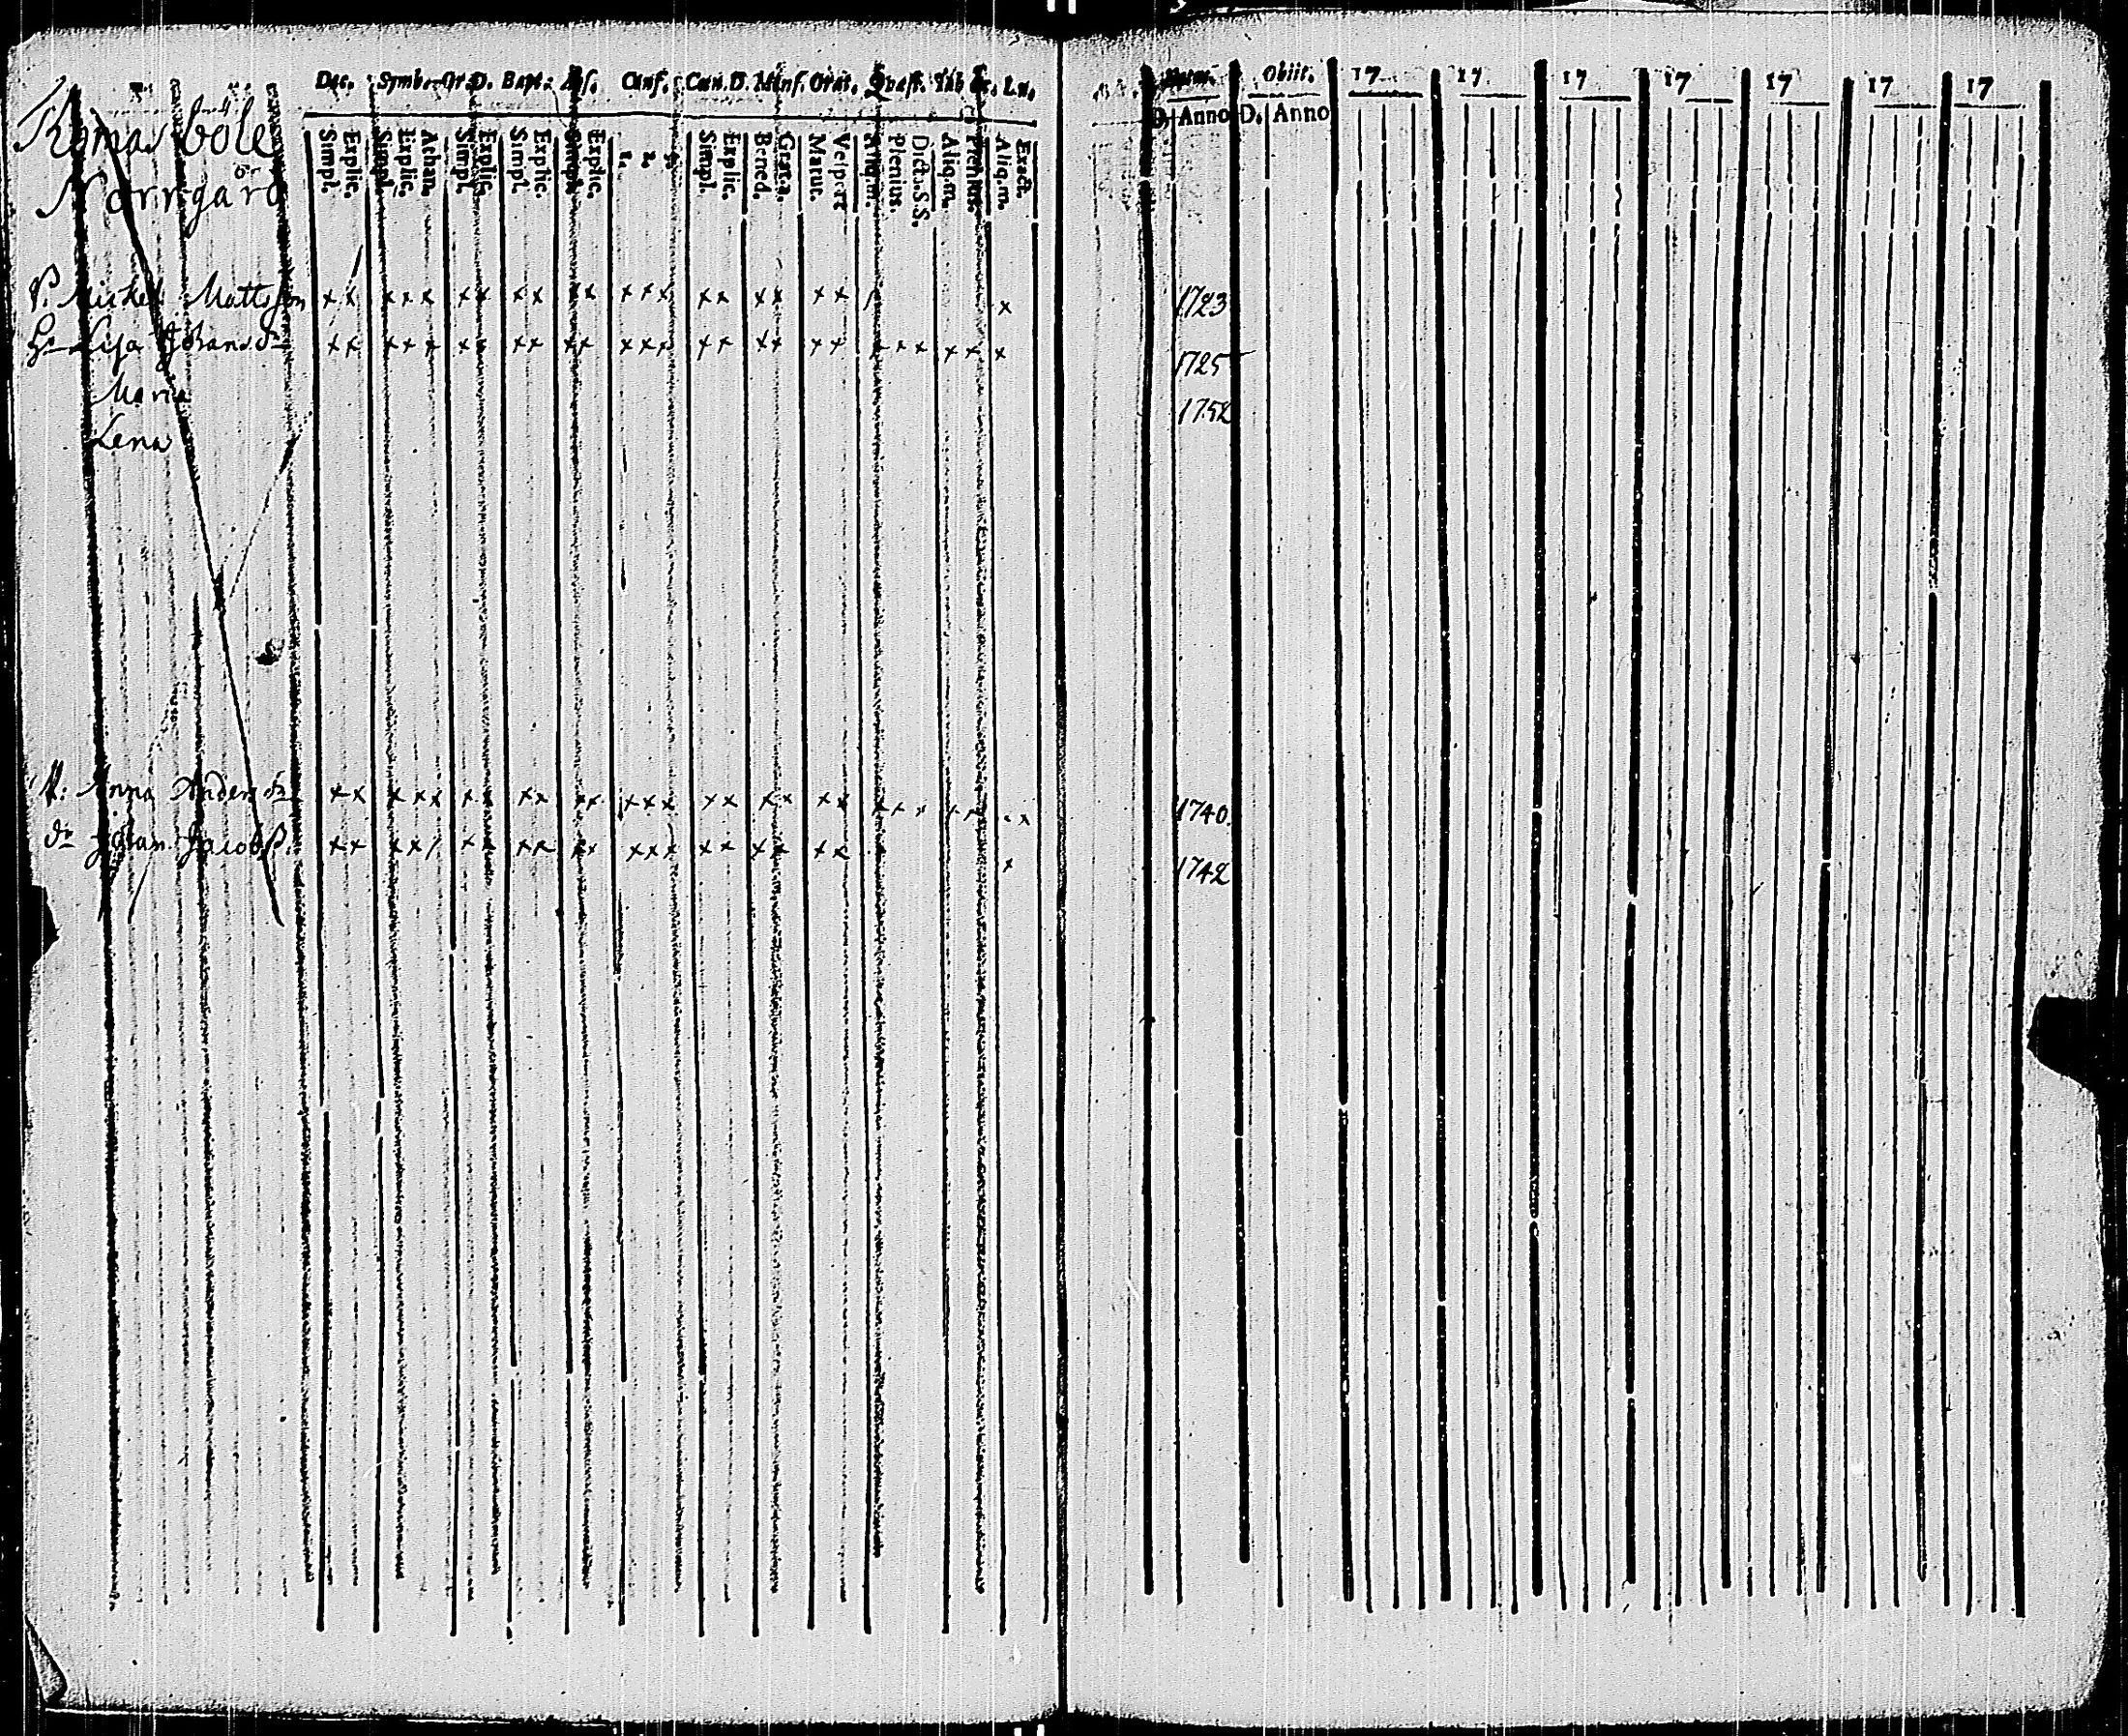 Dec. Symb. Or.D. Bapt. Conf. Cœn.D. Menf. Orat. Quæst. Tab
Simpl. Explic. Simpl. Explic. Athan. Simpl. Explic. Simpl. Explic. Simpl. Explic. 1. 2. 3. Simpl. Explic. Bened. Grat.a. Matut. Vespert Aliq.m. Plenius. Dict.S.S. Aliq.m. Plenius. Aliq.m. Exact.
Natus. Obiit. 17 17 17 17 17 17 17
D. Anno D. Anno
Thomasböle
Norrgård
Michel Mattsson x x x x x x x x x x x x x x x x x x x x x 1723
Lisa Johansdr x x x x x x x x x x x x x x x x x x x x x x x x x x 1725
Maria 1752
Lena
Anna Andersdr x x x x x x x x x x x x x x x x x x x x x x x x x 1740.
Johan Jacobss. x x x x x x x x x x x x x x x x x x x x 1742